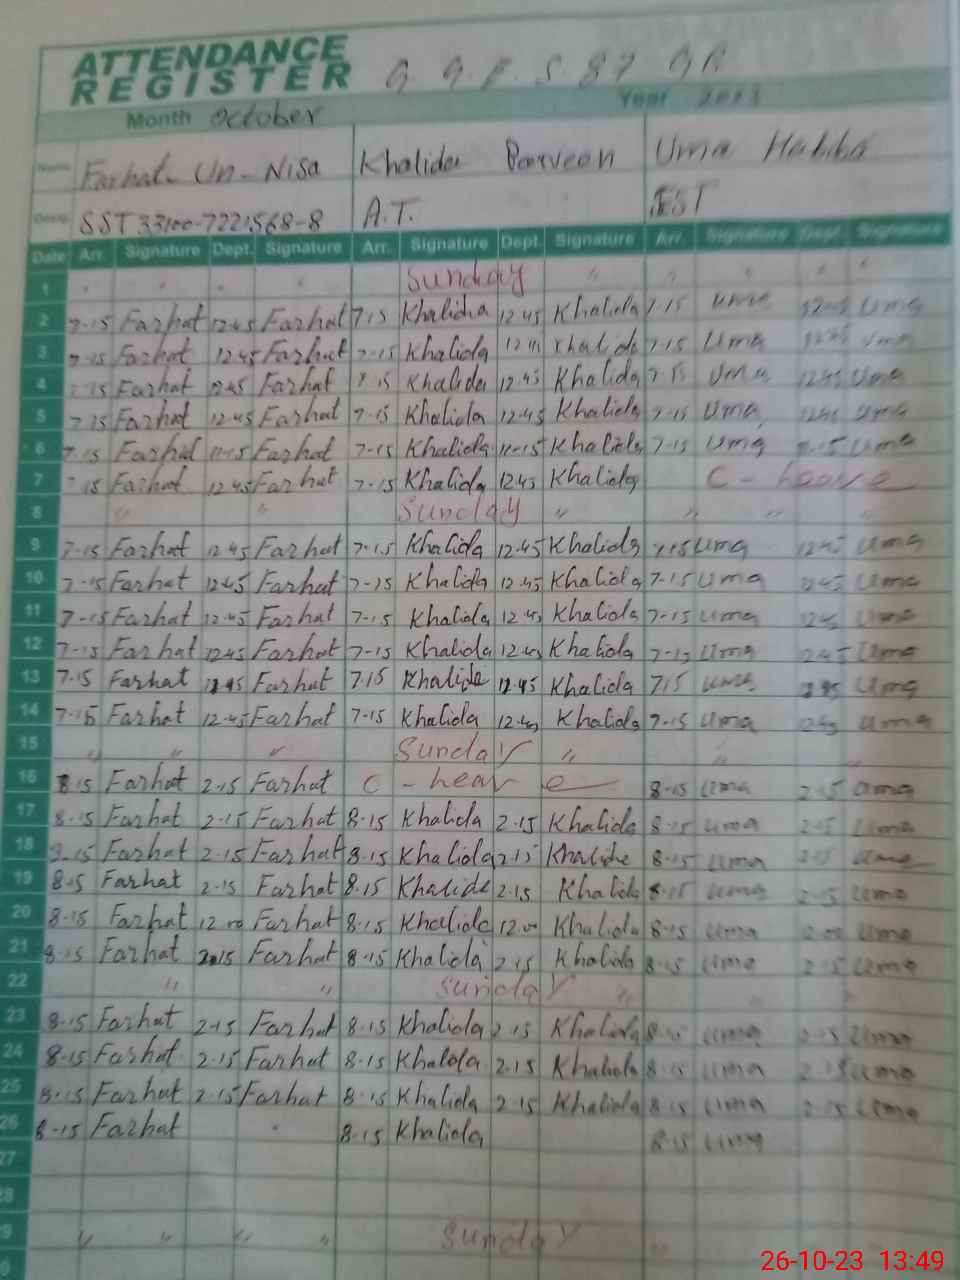 ATTENDANCE
REGISTER G. G. P. S. 87 GB
Month October Year 2023
Name Farhat Un-Nisa Khalida Parveen Uma Habiba
Desig. SST 33100-7221568-8 A.T. EST
Date Arr. Signature Dept. Signature Arr. Signature Dept. Signature Arr. Signature Dept. Signature
1 " " " " Sunday " " " " "
2 7-15 Farhat 12.45 Farhat 7.15 Khalida 12.45 Khalida 7.15 Uma 12.45 Uma
3 7-15 Farhat 12.45 Farhat 7-15 Khalida 12.45 Khalida 7.15 Uma 12.45 Uma
4 7.15 Farhat 12.45 Farhat 7.15 Khalida 12.45 Khalida 7.15 Uma 12.45 Uma
5 7.15 Farhat 12.45 Farhat 7-15 Khalida 12.45 Khalida 7-15 Uma 12.45 Uma
6 7.15 Farhat 11-15 Farhat 7-15 Khalida 11-15 Khalida 7-15 Uma Uma
7 7.15 Farhat 12.45 Farhat 7-15 Khalida 12.45 Khalida C - Leave
8 " " Sunday " " "
9 7-15 Farhat 12.45 Farhat 7-15 Khalida 12.45 Khalida 7.15 Uma 12.45 Uma
10 7-15 Farhat 12.45 Farhat 7-15 Khalida 12.45 Khalida 7-15 Uma 12.45 Uma
11 7-15 Farhat 12.45 Farhat 7-15 Khalida 12.45 Khalida 7-15 Uma 12.45 Uma
12 7-15 Farhat 12.45 Farhat 7-15 Khalida 12.45 Khalida 7-15 Uma 12.45 Uma
13 7.15 Farhat 12.45 Farhat 7.15 Khalida 12.45 Khalida 7.15 Uma 12.45 Uma
14 7-15 Farhat 12.45 Farhat 7-15 Khalida 12.45 Khalida 7-15 Uma 12.45 Uma
15 " " " Sunday "
16 8.15 Farhat 2.15 Farhat C - Leave 8.15 Uma 2.15 Uma
17 8.15 Farhat 2.15 Farhat 8.15 Khalida 2.15 Khalida 8.15 Uma 2.15 Uma
18 8.15 Farhat 2.15 Farhat 8.15 Khalida 2.15 Khalida 8.15 Uma 2.15 Uma
19 8.15 Farhat 2.15 Farhat 8.15 Khalida 2.15 Khalida 8.15 Uma 2.15 Uma
20 8.15 Farhat 12.00 Farhat 8.15 Khalida 12.00 Khalida 8.15 Uma Uma
21 8.15 Farhat 2.15 Farhat 8.15 Khalida 2.15 Khalida 8.15 Uma 2.15 Uma
22 " " Sunday "
23 8.15 Farhat 2.15 Farhat 8.15 Khalida 2.15 Khalida 8.15 Uma 2.15 Uma
24 8.15 Farhat 2.15 Farhat 8.15 Khalida 2.15 Khalida 8.15 Uma 2.15 Uma
25 8.15 Farhat 2.15 Farhat 8.15 Khalida 2.15 Khalida 8.15 Uma 2.15 Uma
26 8.15 Farhat 8.15 Khalida 8.15 Uma
27
28
29 " " " " Sunday "
26-10-23 13:49